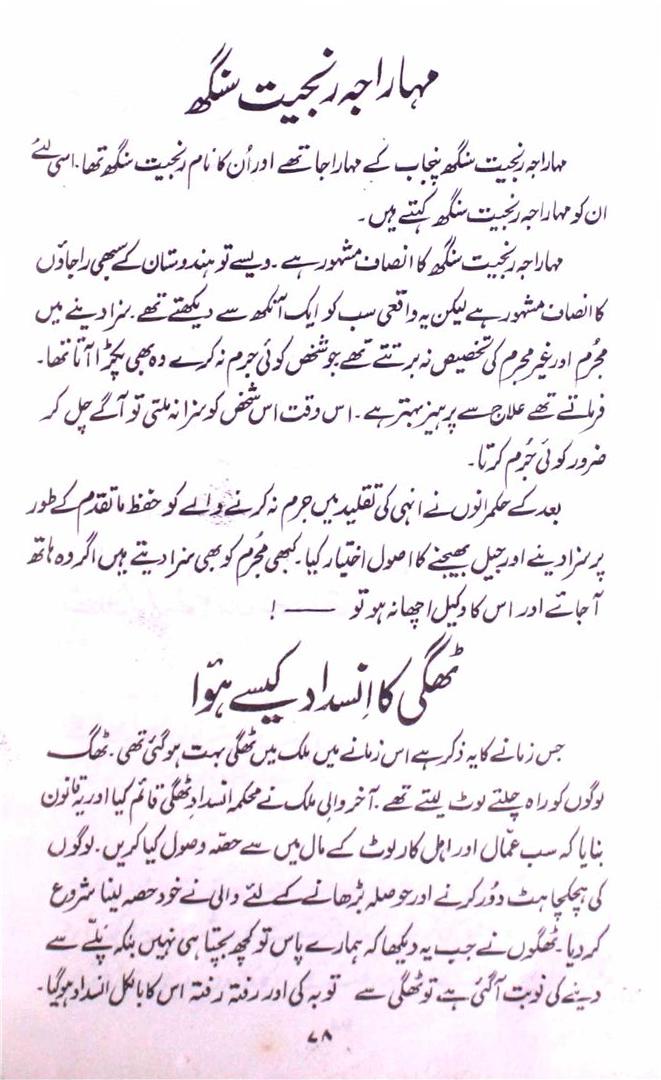 مہاراجہ رنجیت سنگھ
مہاراجہ رنجیت سنگھ پنجاب کے مہاراجا تھے اور اُن کا نام رنجیت سنگھ تھا۔ اسی لئے
ان کو مہاراجہ رنجیت سنگھ کہتے ہیں۔
مہاراجہ رنجیت سنگھ کا انصاف مشہور ہے۔ ویسے تو ہندوستان کے سبھی راجاؤں
کا انصاف مشہور ہے لیکن یہ واقعی سب کو ایک آنکھ سے دیکھتے تھے۔ سزا دینے میں
مجُرم اور غیر مجرم کی تخصیص نہ برتتے تھے جو شخص کوئی جرم نہ کرے وہ بھی پکڑا آتا تھا۔
فرماتے تھے علاج سے پرہیز بہتر ہے۔ اس وقت اس شخص کو سزا نہ ملتی تو آگے چل کر
ضرور کوئی جُرم کرتا۔
بعد کے حکمرانوں نے انہی کی تقلید میں جرم نہ کرنے والے کو حفظ ماتقدم کے طور
پر سزا دینے اور جیل بھیجنے کا اصول اختیار کیا۔ کبھی مجُرم کو بھی سزا دیتے ہیں اگر وہ ہاتھ
آ جائے اور اس کا وکیل اچھا نہ ہو تو —— !
ٹھگی کا اِنسداد کیسے ہؤا
جس زمانے کا یہ ذکر ہے اس زمانے میں ملک میں ٹھگی بہت ہو گئی تھی۔ ٹھگ
لوگوں کو راہ چلتے لوٹ لیتے تھے۔ آخر والیِ ملک نے محکمہ انسدادِ ٹھگی قائم کیا اور یہ قانون
بنایا کہ سب عمّال اور اہل کار لوٹ کے مال میں سے حصّہ وصول کیا کریں۔ لوگوں
کی ہچکچاہٹ دُور کرنے اور حوصلہ بڑھانے کے لئے والی نے خود حصہ لینا شروع
کر دیا۔ ٹھگوں نے جب یہ دیکھا کہ ہمارے پاس تو کچھ بچتا ہی نہیں بلکہ پلّے سے
دینے کی نوبت آ گئی ہے تو ٹھگی سے توبہ کی اور رفتہ رفتہ اس کا بالکل انسداد ہو گیا۔
۷۸